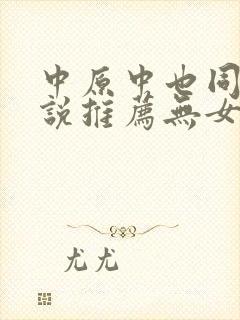 中原中也同
說推薦無女
尤尤